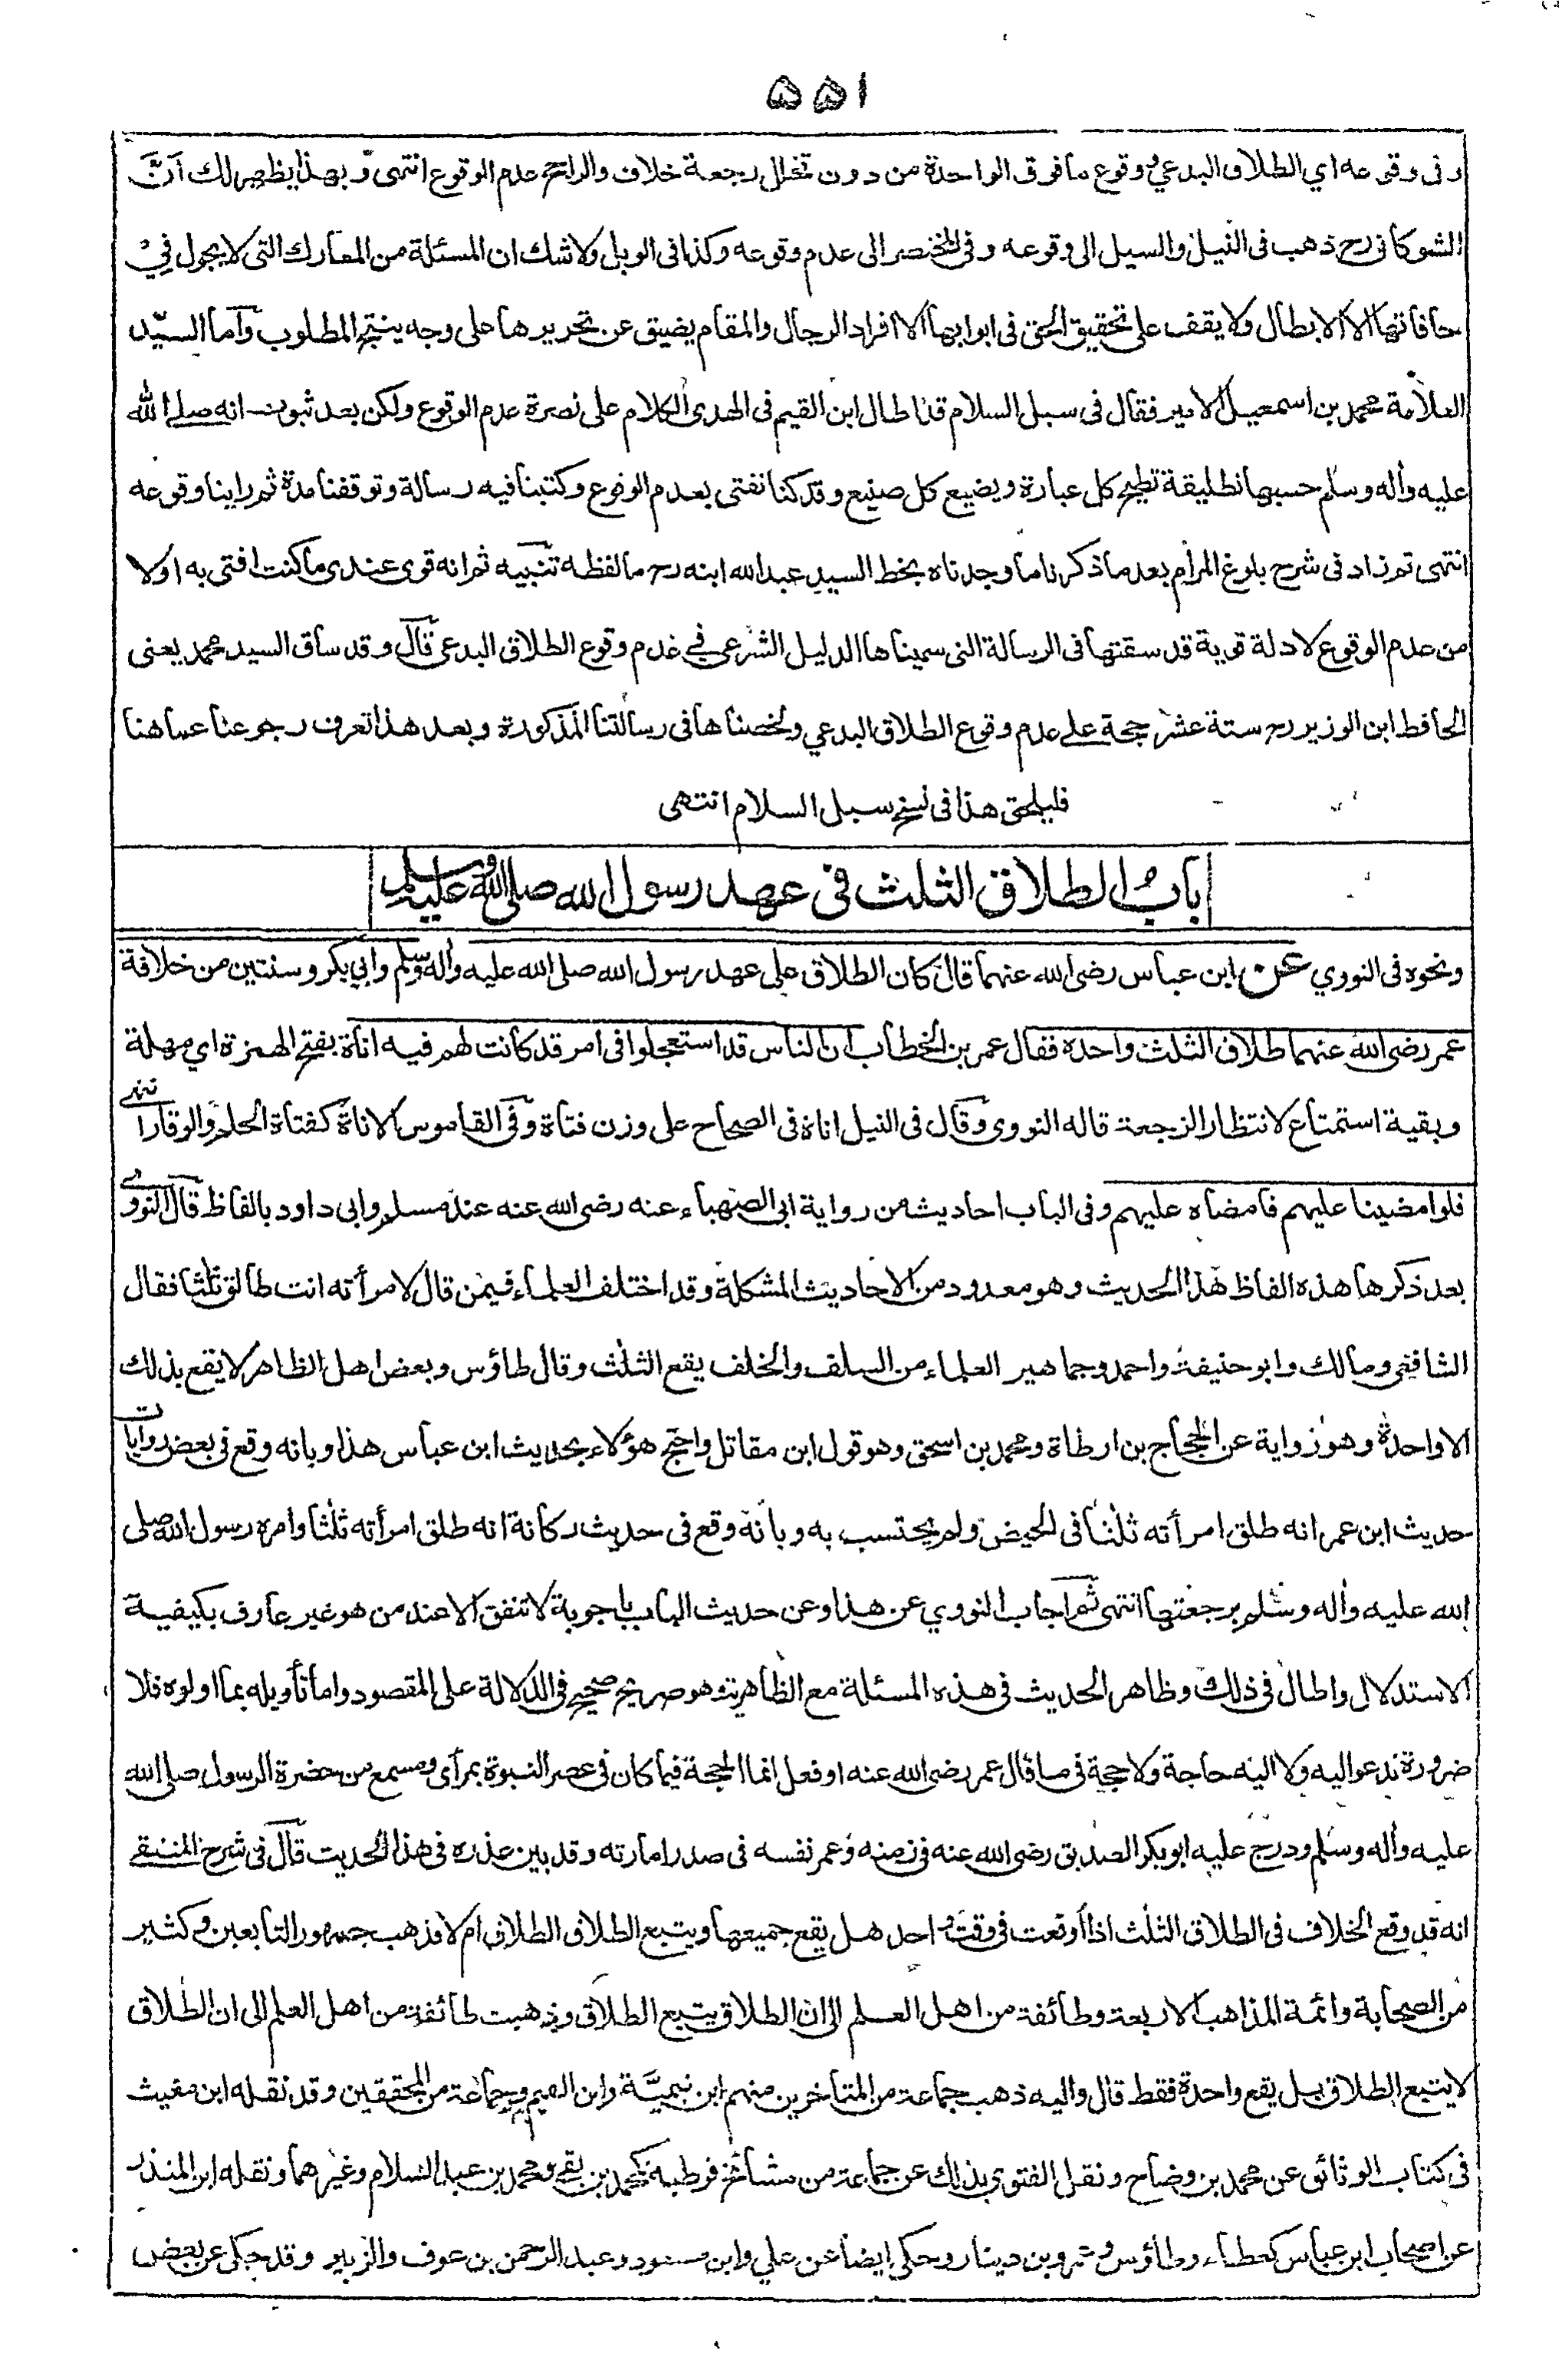 ۵۵۱
وفى وقوعه اي الطلاق البدعي وقوع ما فوق الواحدة من دون تخلل رجعة خلاف والراجح عدم الوقوع انتهى وبهذا يظهر لك أنّ
الشوكانى رح ذهب فى النيل والسيل الى وقوعه وفى المختصر الى عدم وقوعه وكذا فى الوبل ولا شك ان المسئلة من المعارك التى لا يجول في
حافاتها الا الابطال ولا يقف على تحقيق الحق فى ابوابها الا افراد الرجال والمقام يضيق عن تحريرها على وجه ينتج المطلوب وأما السيّد
العلامة محمد بن اسمعيل الامير فقال فى سبل السلام قد اطال ابن القيم فى الهدى الكلام على نصرة عدم الوقوع ولكن بعد ثبوت انه صلى الله
عليه واٰله وسلم حسبها تطليقة تطيح كل عبارة ويضيع كل صنيع وقد كنا نفتى بعدم الوقوع وكتبنا فيه رسالة وتوقفنا مدة ثم راينا وقوعه
انتهى ثم زاد فى شرح بلوغ المرام بعد ما ذكرنا ما وجدناه بخط السيد عبد الله ابنه رح ما لفظه تنبيه ثم انه قوى عندى ما كنت افتى به اولا
من عدم الوقوع لادلة قوية قد سقتها فى الرسالة التى سميناها الدليل الشرعي في عدم وقوع الطلاق البدعى قال وقد ساق السيد محمد يعنى
الحافظ ابن الوزير رح ستة عشر حجة على عدم وقوع الطلاق البدعي ولخصناها فى رسالتنا المذكورة وبعد هذا تعرف رجوعنا عما هنا
فليلحق هذا فى نسخ سبل السلام انتهى
باب الطلاق الثلث فى عهد رسول الله صلى الله عليه وسلم
ونحوه فى النووي عن ابن عباس رضى الله عنهما قال كان الطلاق على عهد رسول الله صلى الله عليه واٰله وسلم وأبي بكر وسنتين من خلافة
عمر رضى الله عنهما طلاق الثلث واحدة فقال عمر بن الخطاب ان الناس قد استعجلوا فى امر قد كانت لهم فيه اناة بفتح الهمزة اي مهلة
وبقية استمتاع لانتظار الرجعة قاله النووي وقال فى النيل اناة فى الصحاح على وزن فتاة وفى القاموس الاناة كفتاة الحلم والوقار انتهى
فلو امضينا عليهم فامضاه عليهم وفى الباب احاديث من رواية ابى الصهباء عنه رضى الله عنه عند مسلم وابى داود بالفاظ قال النووي
بعد ذكرها هذه الفاظ هذا الحديث وهو معدود من الاحاديث المشكلة وقد اختلف العلماء فيمن قال لامرأته انت طالق ثلثا فقال
الشافعي ومالك وابو حنيفة واحمد وجماهير العلماء من السلف والخلف يقع الثلث وقال طاؤس وبعض اهل الظاهر لا يقع بذلك
الا واحدة وهو رواية عن الحجاج بن ارطاة ومحمد بن اسحق وهو قول ابن مقاتل واحتج هؤلاء بحديث ابن عباس هذا وبانه وقع فى بعض روايات
حديث ابن عمر انه طلق امرأته ثلثا فى الحيض ولم يحتسب به وبانه وقع فى حديث ركانة انه طلق امرأته ثلثا وامره رسول الله صلى
الله عليه واٰله وسلم برجعتها انتهى ثم اجاب النووي عن هذا وعن حديث الباب باجوبة لا تنفق الا عند من هو غير عارف بكيفية
الاستدلال واطال فى ذلك وظاهر الحديث فى هذه المسئلة مع الظاهرية وهو صريح صحيح فى الدلالة على المقصود واما تأويله بما اولوه فلا
ضرورة تدعو اليه ولا اليه حاجة ولا حجة فى ما قال عمر رضى الله عنه او فعل انما الحجة فيما كان فى عصر النبوة بمرأى ومسمع من حضرة الرسول صلى الله
عليه واٰله وسلم ودرج عليه ابو بكر الصديق رضى الله عنه فى زمنه وعمر نفسه فى صدر امارته وقد بين عذره فى هذا الحديث قال فى شرح المنتقى
انه قد وقع الخلاف فى الطلاق الثلث اذا أوقعت فى وقت واحد هل يقع جميعها ويتبع الطلاق الطلاق ام لا فذهب جمهور التابعين وكثير
من الصحابة وائمة المذاهب الاربعة وطائفة من اهل العلم الى ان الطلاق يتبع الطلاق وذهبت طائفة من اهل العلم الى ان الطلاق
لا يتبع الطلاق بل يقع واحدة فقط قال واليه ذهب جماعة من المتاخرين منهم ابن تيميّة وابن القيم وجماعة من المحققين وقد نقله ابن مغيث
فى كتاب الوثائق عن محمد بن وضاح ونقل الفتوى بذلك عن جماعة من مشائخ قرطبة كمحمد بن بقي ومحمد بن عبد السلام وغيرهما ونقله ابن المنذر
عن اصحاب ابن عباس كعطاء وطاؤس وعمرو بن دينار وحكي ايضا عن علي وابن مسعود وعبد الرحمن بن عوف والزبير وقد حكى عن بعض